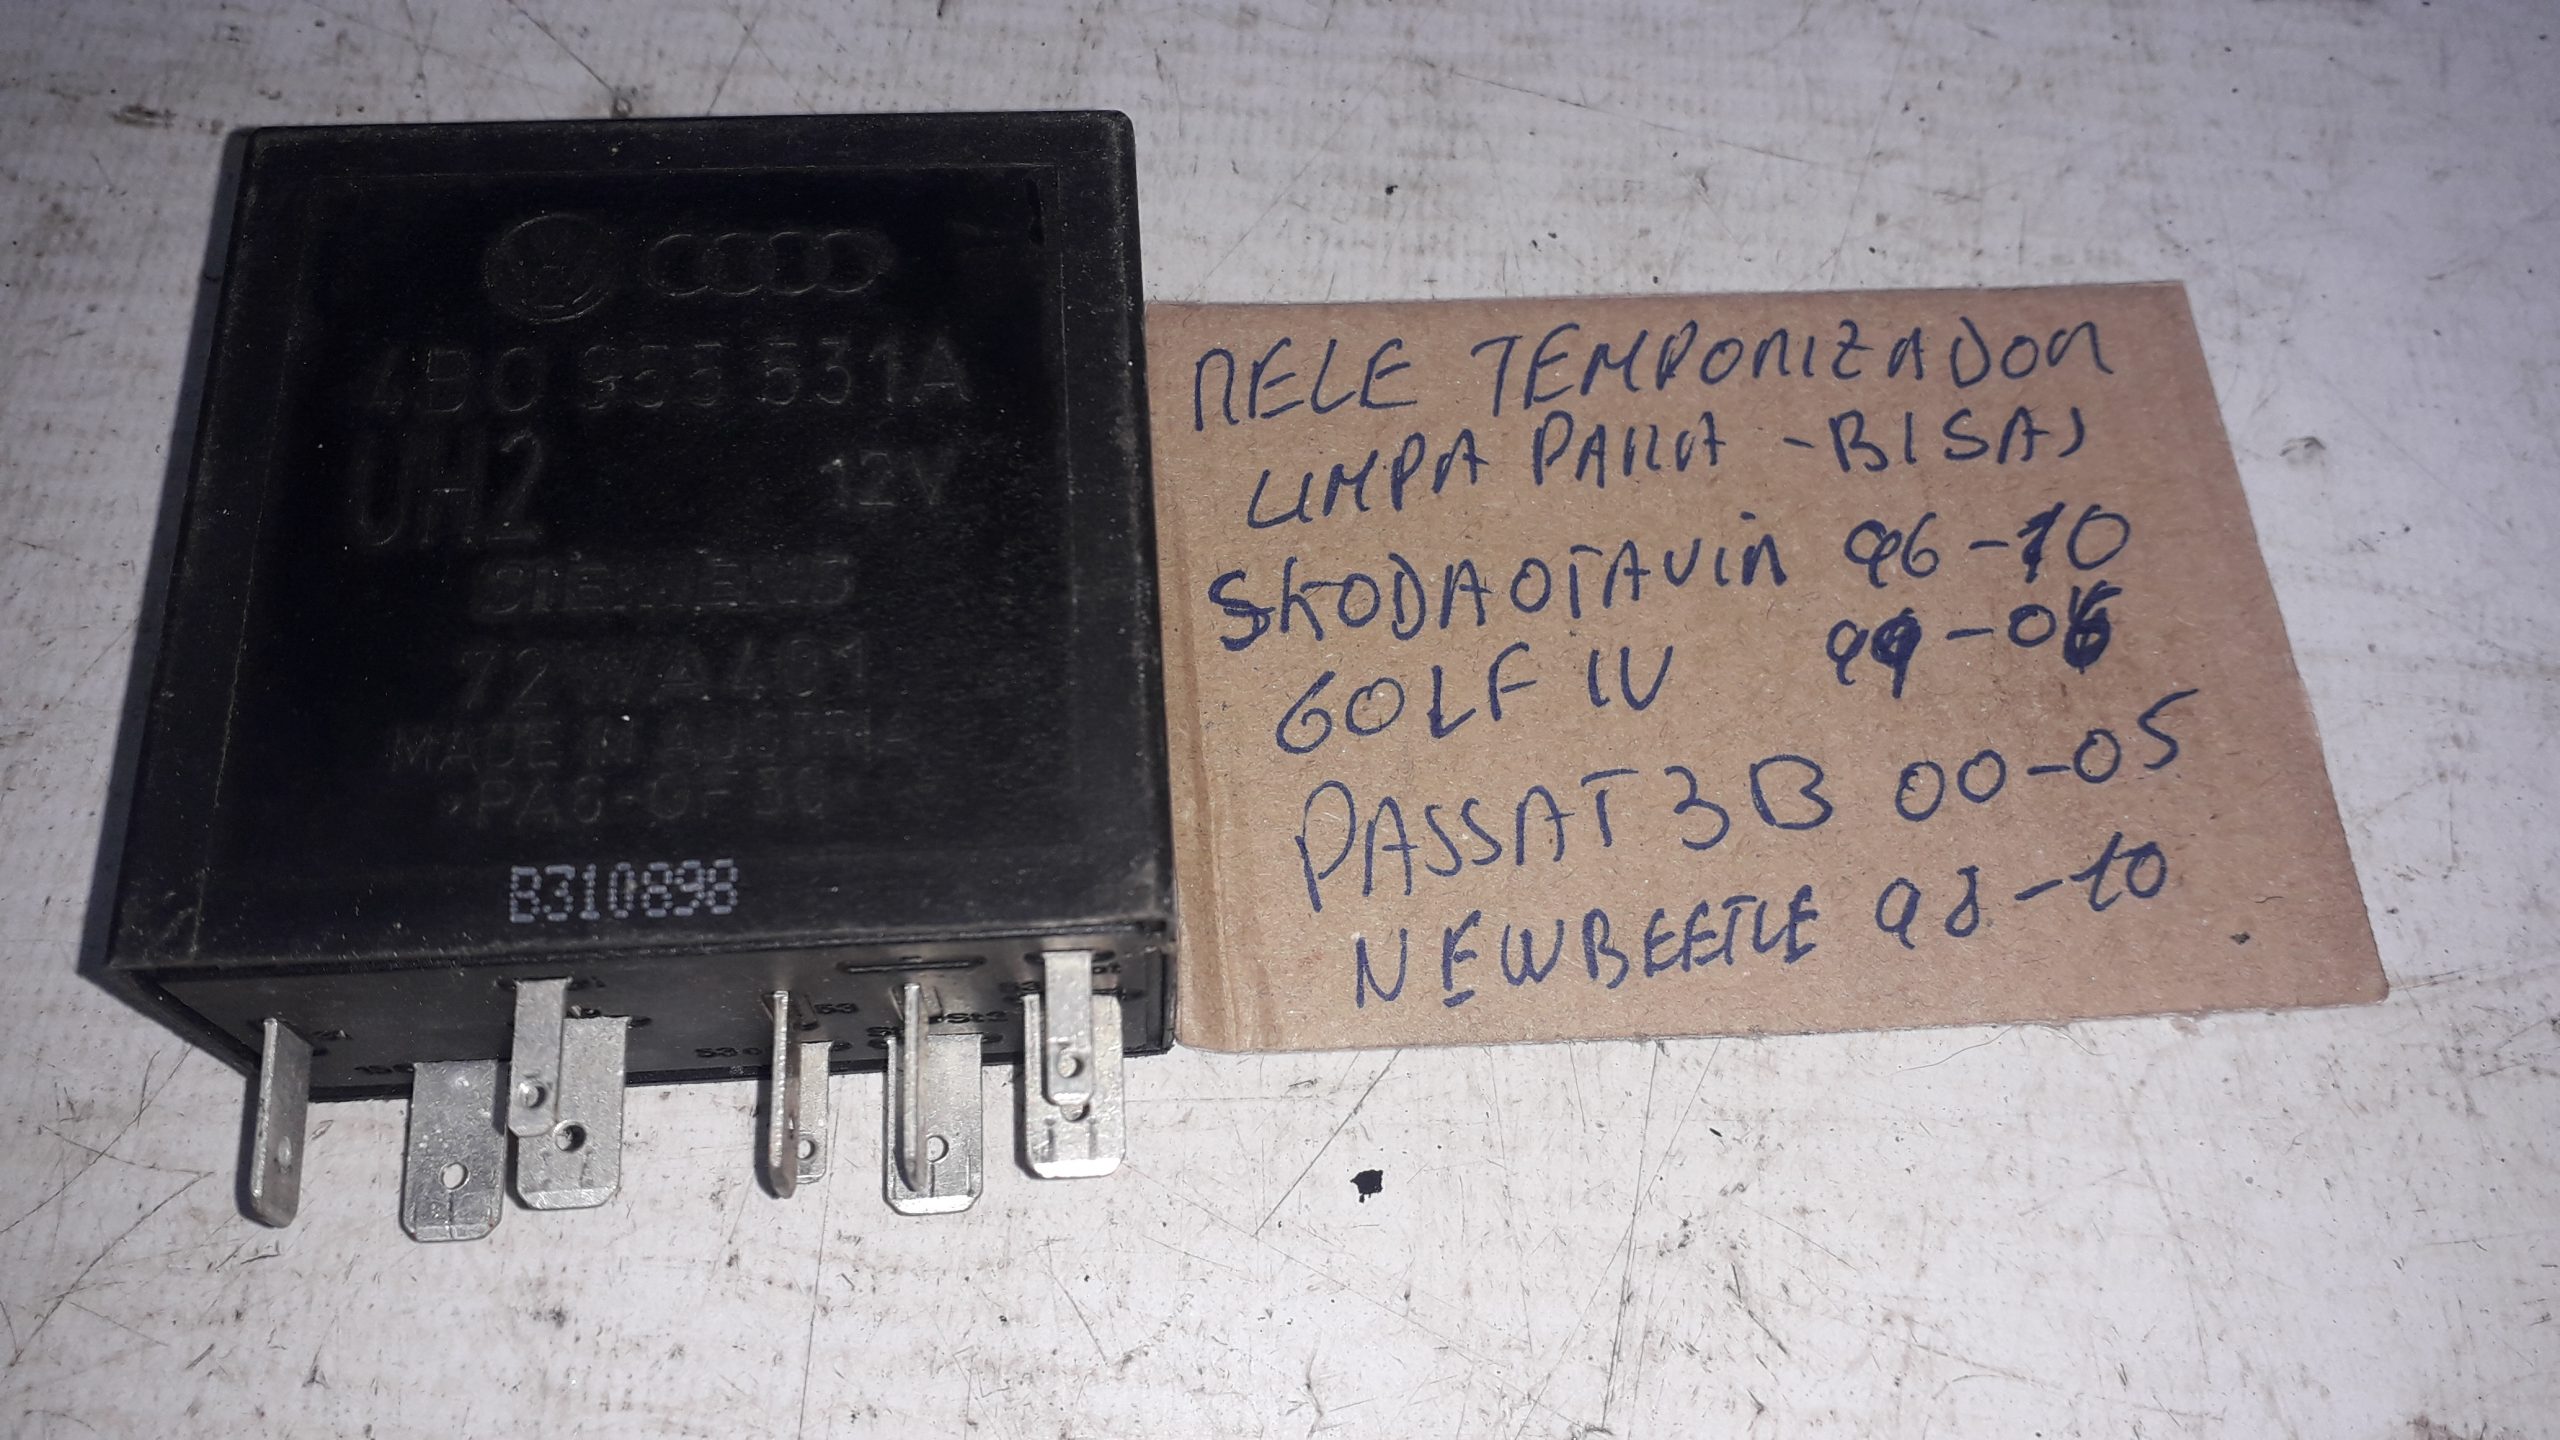 4B0 955 531A
UH2 12V
SIEMENS
72WA401
MADE IN AUSTRIA
>PA6-GF30<
B310898
53
RELE TEMPORIZADOR
LIMPA PARA-BISAS
SKODA OTAVIA 96-10
GOLF IV 99-06
PASSAT 3B 00-05
NEWBEETLE 98-10